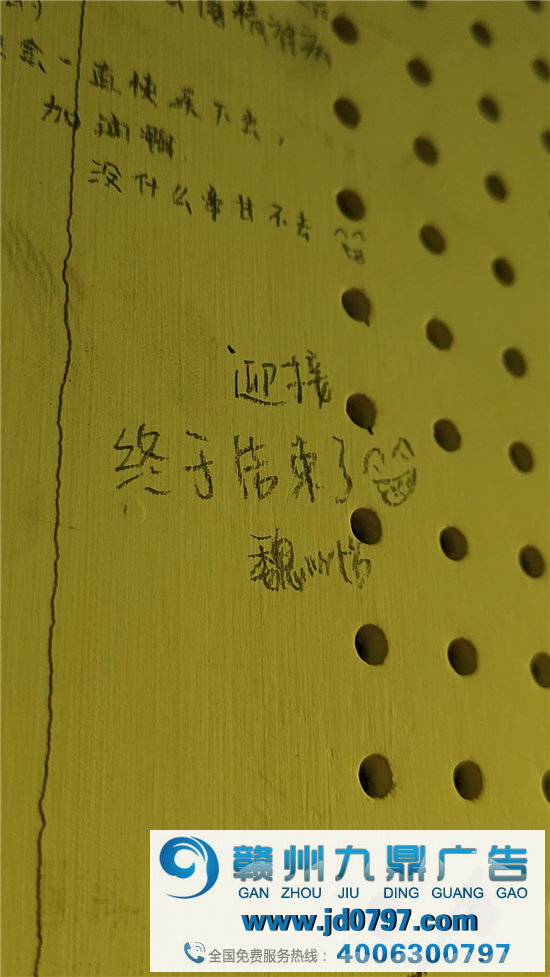 一直快乐下去，
加油啊
没什么事过不去
迎接
终于结束了
魏
赣州九鼎广告
GAN ZHOU JIU DING GUANG GAO
www.jd0797.com
全国免费服务热线：4006300797